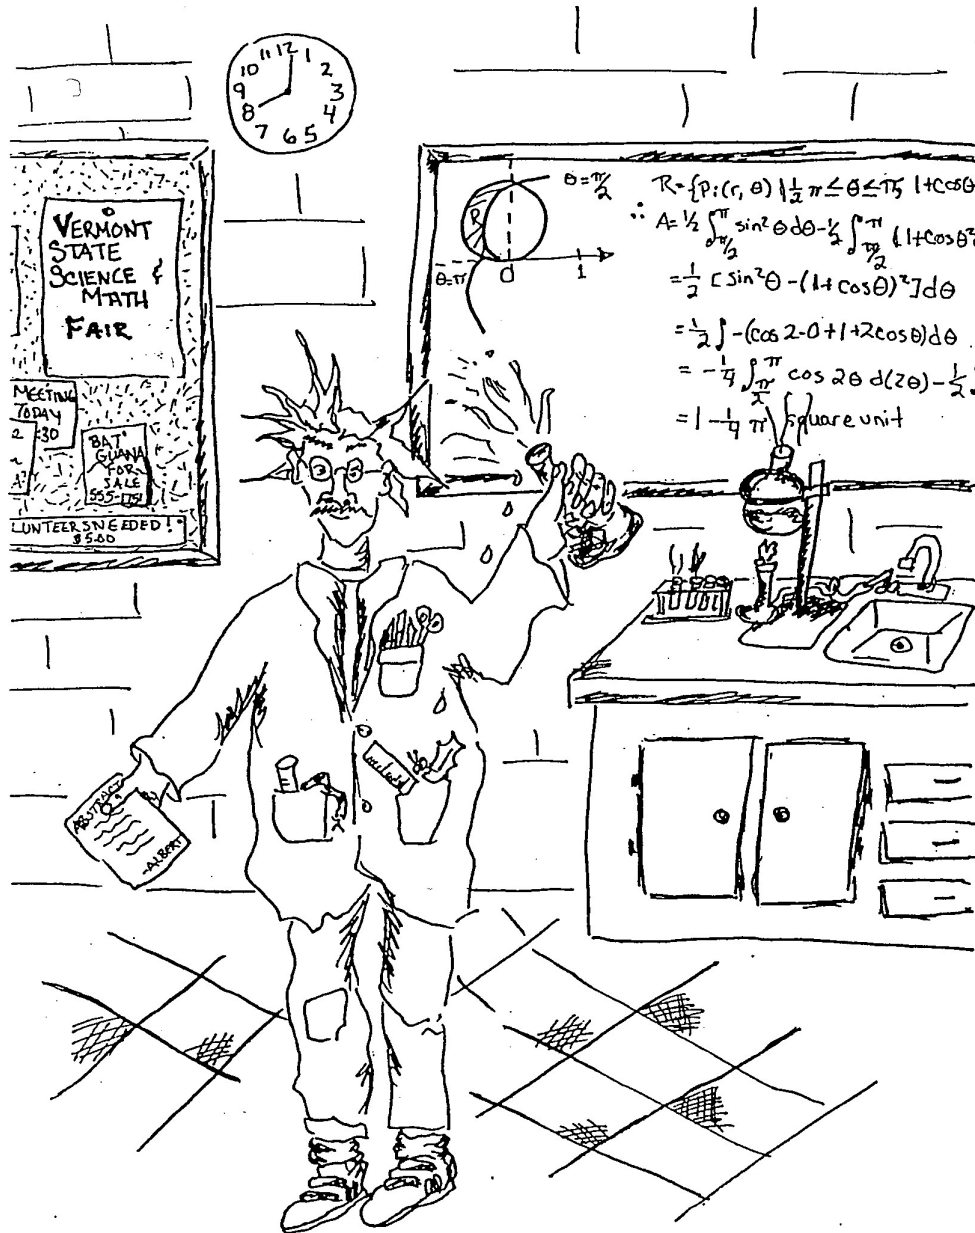 11 12 1
10 2
9 3
8 4
7 6 5
VERMONT
STATE
SCIENCE &
MATH
FAIR
MEETING
TODAY
:30
BAT
GUANA
FOR
SALE
555-1751
LUNTEERS NEEDED!
$5.00
R
θ=π/2
θ=π
0
1
R={P:(r, θ) | 1/2 π ≤ θ ≤ π, 1+cosθ
∴ A= 1/2 ∫π/2^π sin²θ dθ - 1/2 ∫π/2^π (1+cosθ²
= 1/2 [sin²θ - (1+cosθ)²]dθ
= 1/2 ∫ -(cos 2-0+1+2cosθ)dθ
= - 1/4 ∫π/2^π cos 2θ d(2θ) - 1/2 ∫
= 1 - 1/4 π square unit
ABSTRACT
-ALBERT